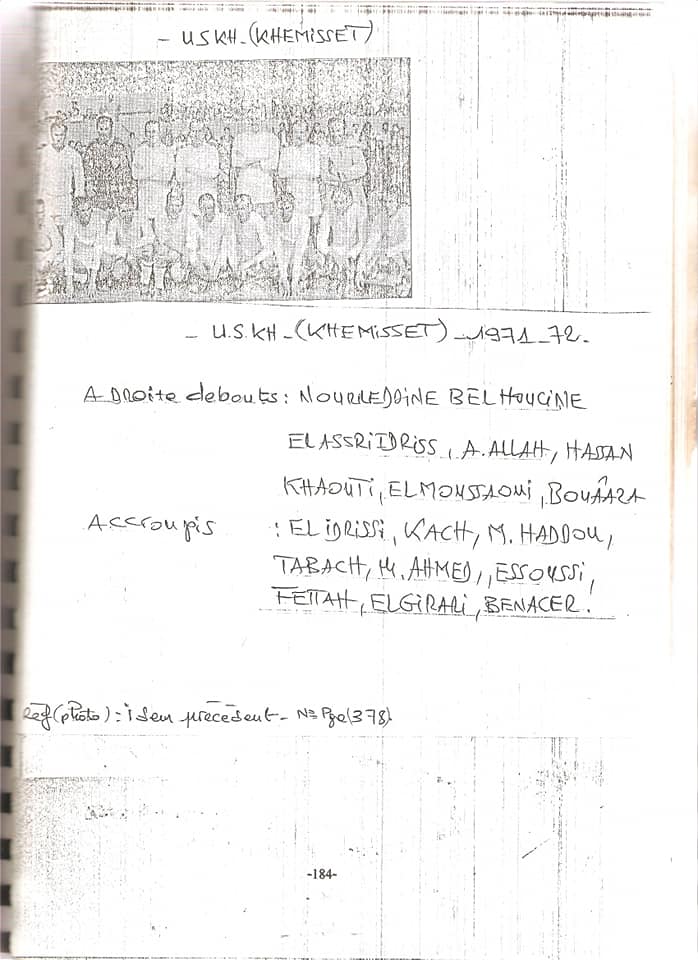 - U.S.KH_(KHEMISSET)
- U.S.KH_(KHEMISSET)_1971_72.
A DROITE debouts: NOURREDDINE BELHOUCINE
EL ASSRI IDRISS, A.ALLAH, HASSAN
KHAOUTI, EL MOUSSAOUI, BOUÂAZA
Accroupis : EL iDRISSi, KACH, M. HADDOU,
TABACH, M. AHMED,, ESSOUSSi,
FETTAH, ELGiRARi, BENACER!
Ref(photo): idem précédent_ N= Pge(378).
-184-